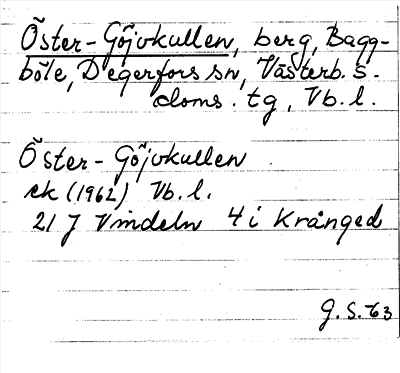 Öster-Göjvkullen, berg, Bagg-
böle, Degerfors sn, Västerb. s.
doms. tg, Vb. l.
Öster-Göjvkullen
ek (1962) Vb. l.
21 J Vindeln 4 i Krånged
G. S. 63